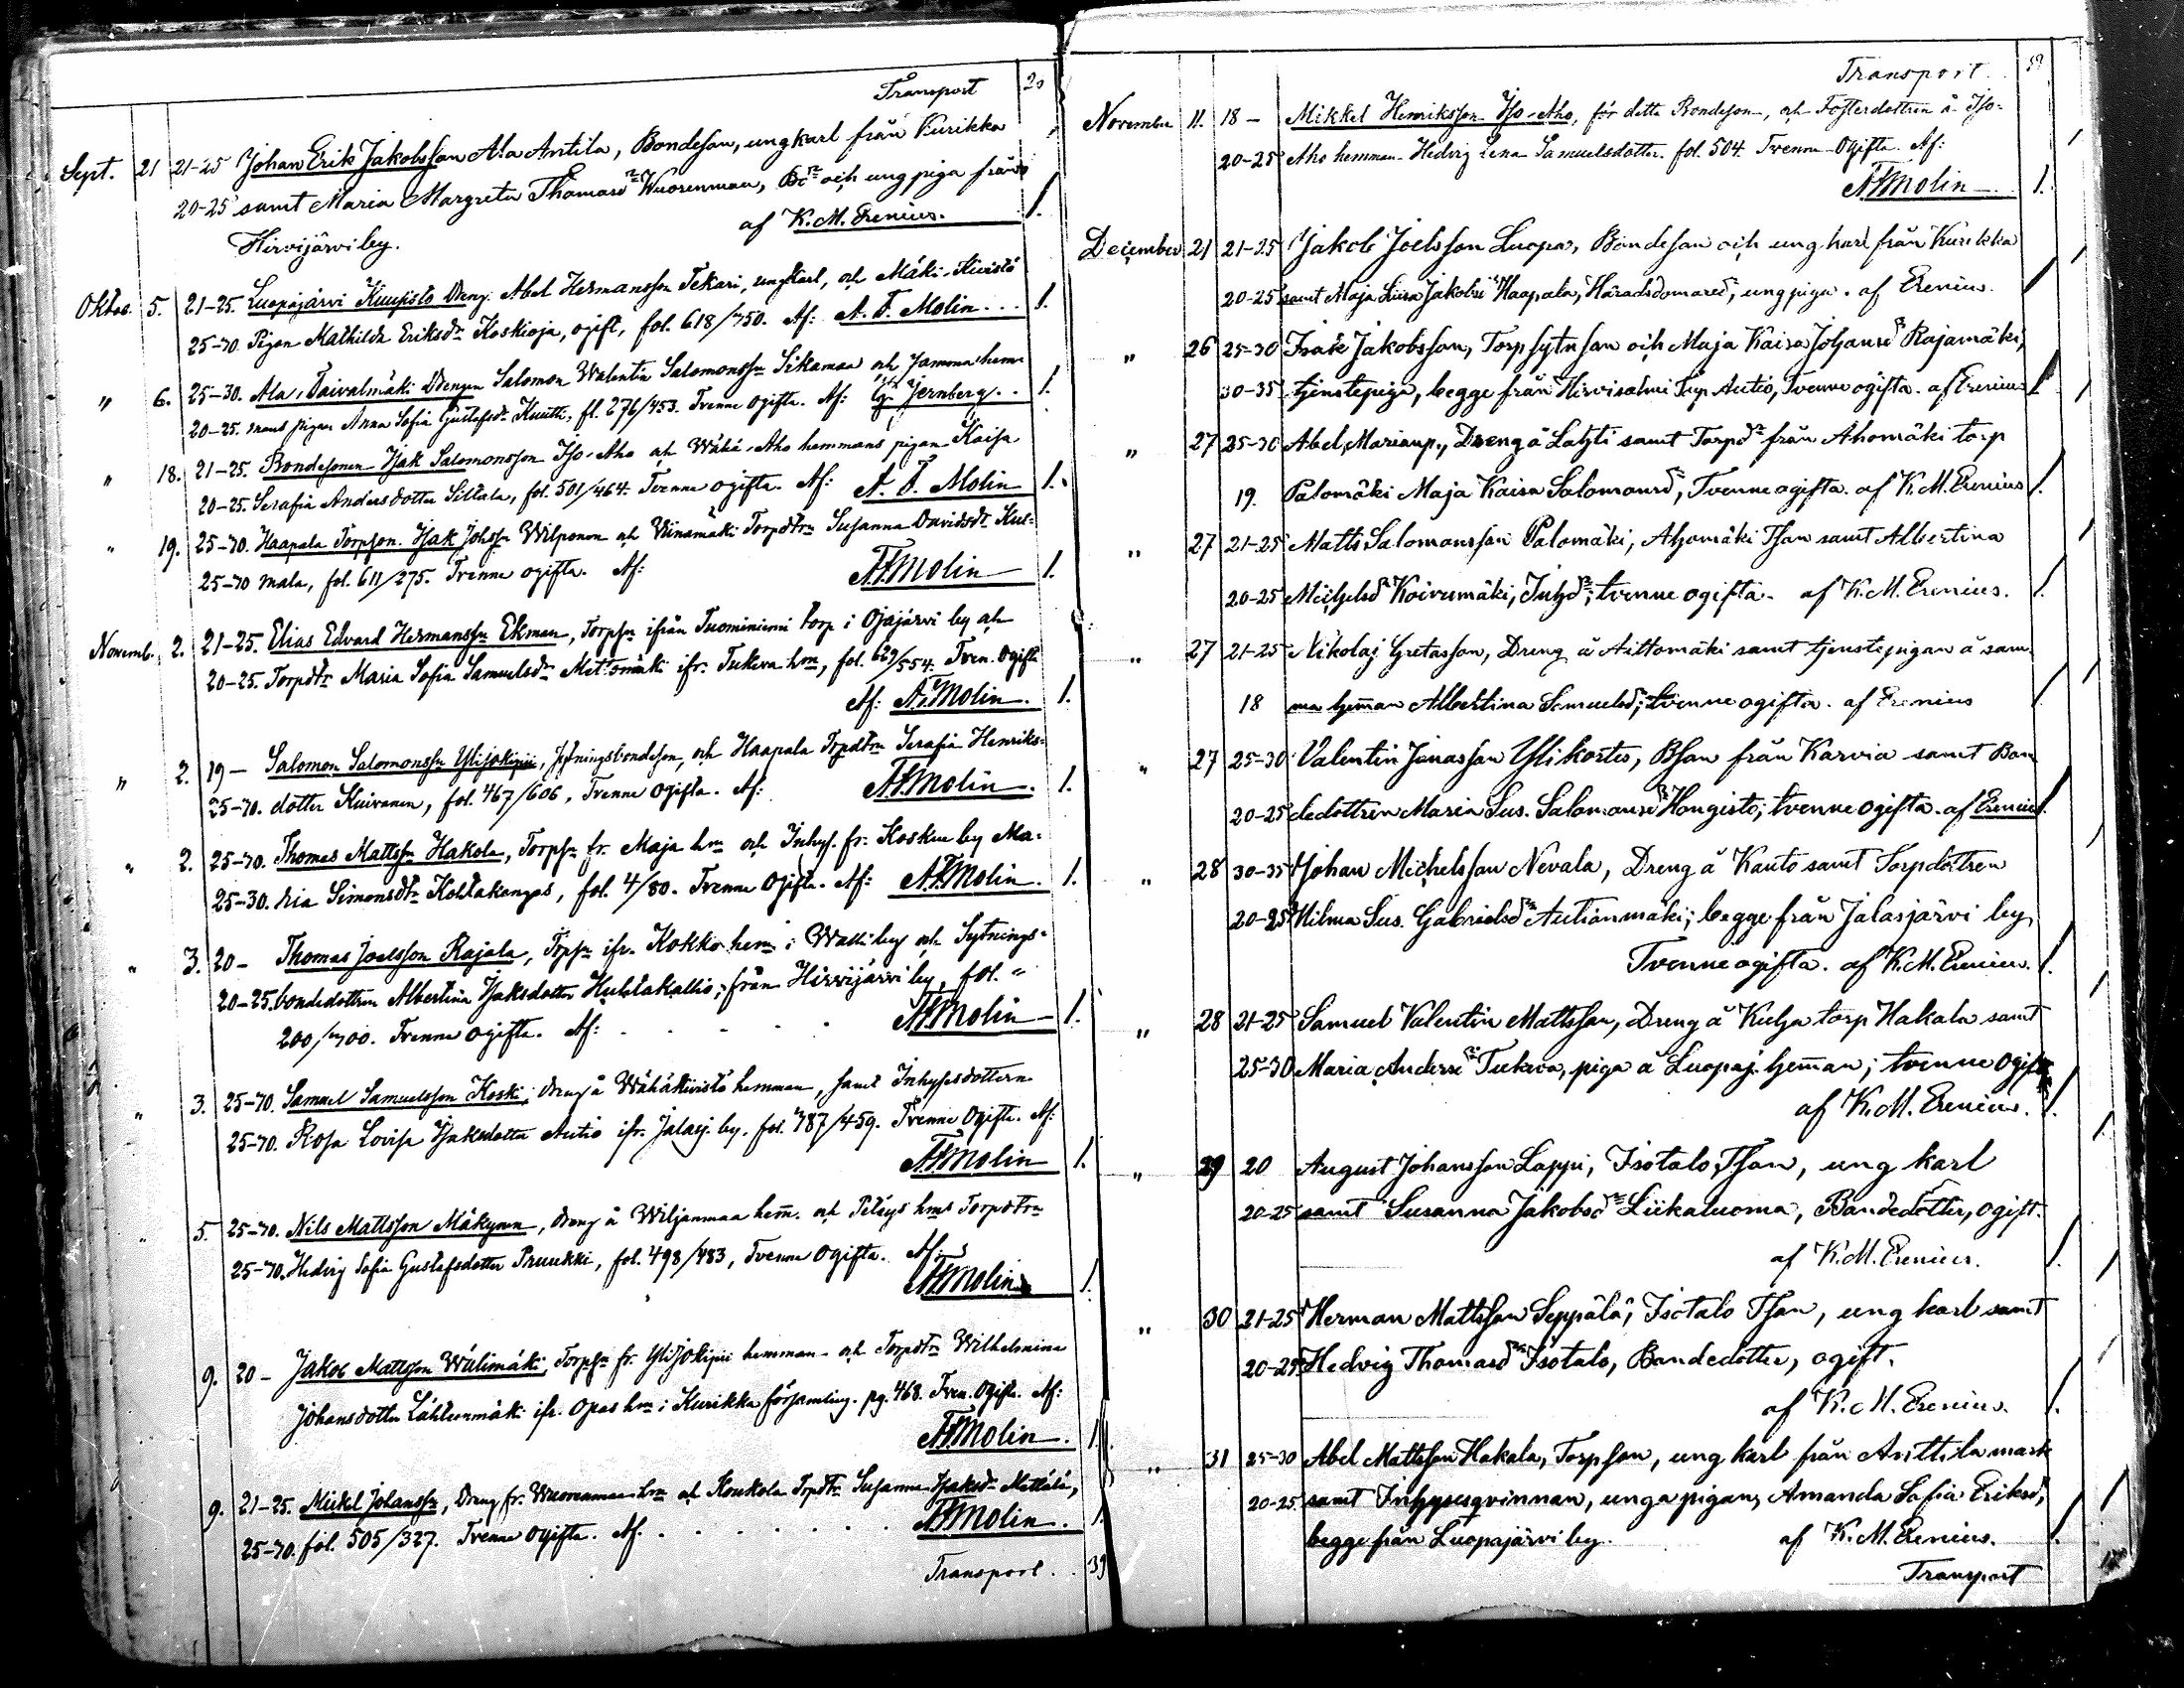 Transport 20
Sept. 21 21-25 Johan Erik Jakobsson Ala Antila, Bondeson, ungkarl från Kurikka
20-25 samt Maria Margreta Thomasdr Wuorenmaa, Bdr och ung piga från
Hirvijärvi by. af K. M. Erenius. 1.
Oktob. 5. 21-25. Luopajärvi Kuupisto Dreng Abel Hermansson Tekari, ungkarl, och Mäki-Kivistö
25-70. Pigan Mathilda Eriksdr Koskioja, ogift, fol. 618/750. Af: A. F. Molin... 1.
„ 6. 25-30. Ala-Taivalmäki Drengen Salomon Walentin Salomonssn Sikamaa och samma hem-
20-25. mans pigan Anna Sofia Gustafsdr Knuth, fl. 276/453. Tvenne ogifta. Af: Jernberg.. 1.
„ 18. 21-25. Bondesonen Isak Salomonsson Iso-Aho och Wähä-Aho hemmans pigan Kaisa
20-25. Serafia Andersdotter Siltala, fol. 501/464. Tvenne ogifta. Af: A. F. Molin 1.
„ 19. 25-70. Haapala Torpson. Isak Johssn Wilponen och Viinamäki Torpdtrn Susanna Davidsdr Kus-
25-70 mala, fol. 611/275. Tvenne ogifta. Af: A F Molin 1.
Novemb. 2. 21-25. Elias Edvard Hermanssn Ekman, Torpsn ifrån Tuominiemi torp i Ojajärvi by och
20-25. Torpdtr Maria Sofia Samuelsdr Metsomäki ifr. Tukeva hmn, fol. 629/554. Tven. Ogifta
Af: A. F. Molin. 1.
„ 2. 19 - Salomon Salomonssn Ylijokipii, sytningsbondeson, och Haapala Torpdtrn Serafia Henriks-
25-70. dotter Kuivanen, fol. 467/606. Tvenne Ogifta. Af: A. F. Molin. 1.
„ 2. 25-70. Thomas Mattssn Hakola, Torpsn fr. Maja hmn och Inhys. fr. Koskue by Ma-
25-30. ria Simonsdtr Kohtakangas, fol. 4/80. Tvenne Ogifta. Af: A. F. Molin. 1.
„ 3. 20 - Thomas Joelsson Rajala, Torpsn ifr. Kokko hem. i Walli by och Sytnings-
20-25. bondedottren Albertina Isaksdotter Huhtakallio; från Hirvijärvi by, fol.
200/700. Tvenne ogifta. Af: . . . . A. F. Molin 1.
„ 3. 25-70. Samuel Samuelsson Koski, dreng å Wähäkivistö hemman, samt Inhysesdottern
25-70. Rosa Lovisa Isaksdotter Autio ifr. Jalasj. by. fol. 787/459. Tvenne Ogifta. Af:
A F Molin 1.
„ 5. 25-70. Nils Mattsson Mäkynen, dreng å Wiljanmaa hem. och Peltys hms Torpdtrn
25-70. Hedvig Sofia Gustafsdotter Pruukki, fol. 498/483, Tvenne Ogifta. Af:
A F Molin 1.
9. 20 - Jakob Mattsson Wälimäki, Torpsn fr. Ylijokipii hemman och Torpdtrn Wilhelmina
Johansdotter Lähteenmäki ifr. Opas hmn i Kurikka församling. pg. 468. Tven. Ogifta. Af:
A F Molin. 1.
9. 21-25. Mickel Johanssn, Dreng fr. Wuorenmaa hmn och Koukola Trpdtr. Susanna Isaksdr Mattälä,
25-70. fol. 505/327. Tvenne Ogifta. Af. . . . . . . A F Molin. 1
Transport. . 39
Transport. . 39
November 11. 18 - Mikkel Henriksson Iso-Aho, för detta Bondeson, och Fosterdottren å Iso-
20-25 Aho hemman Hedvig Lena Samuelsdotter. fol. 504. Tvenne Ogifta. Af:
A F Molin 1.
December 21 21-25 Jakob Joelsson Luopa, Bondeson och ung karl från Kurikka
20-25 samt Maja Liisa Jakobsdr Haapala, Häradsdomared., ung piga. af Erenius.
„ 26 25-30 Isak Jakobsson, Torpsytnson och Maja Kaisa Johansdr Rajamäki,
30-35 tjenstepiga, begge från Hirvisalmi Trp Autio, Tvenne ogifta. af Erenius 1.
„ 27 25-30 Abel, Mariasp., Dreng å Lahti samt Torpdr från Ahomäki torp
19. Palomäki Maja Kaisa Salomonsd., Tvenne ogifta. af K. M. Erenius 1.
„ 27 21-25 Matts Salomonsson Palomäki, Ahomäki Tson samt Albertina
20-25 Michelsdr Koivumäki, Inhdr; tvenne ogifta. af K. M. Erenius. 1.
„ 27 21-25 Nikolaj Gretasson, Dreng å Aittomäki samt tjenstepigan å sam
18 ma heman Albertina Samuelsd; tvenne ogifta. af Erenius
„ 27 25-30 Valentin Jonasson Ylikortes, Bson från Karvia samt Bon
20-25 dedottren Maria Sus. Salomonsdr Hongisto; tvenne ogifta. af Erenius.
„ 28 30-35 Johan Michelsson Nevala, Dreng å Kanto samt Torpdottren
20-25 Hilma Sus. Gabrielsdr Autianmäki; begge från Jalasjärvi by,
Tvenne ogifta. af K. M. Erenius. 1.
„ 28 21-25 Samuel Valentin Mattsson, Dreng å Kulja torp Hakala samt
25-30 Maria Andersdr Tukeva, piga å Luopaj. heman; tvenne ogifta
af K. M. Erenius. 1.
„ 29 20 August Johansson Lappi, Isotalo Tson, ung karl
20-25 samt Susanna Jakobsdr Liikaluoma, Bondedotter, ogift.
af K. M. Erenius. 1.
„ 30 21-25 Herman Mattsson Seppälä, Isotalo Tson, ung karl samt
20-25 Hedvig Thomasdr Isotalo, Bondedotter, ogift.
af K. M. Erenius. 1.
„ 31 25-30 Abel Mattsson Hakala, Torpson, ung karl från Anttila mark
20-25. samt Inhysesqvinnan, unga pigan, Amanda Sofia Eriksd,
begge från Luopajärvi by. af K. M. Erenius. 1.
Transport